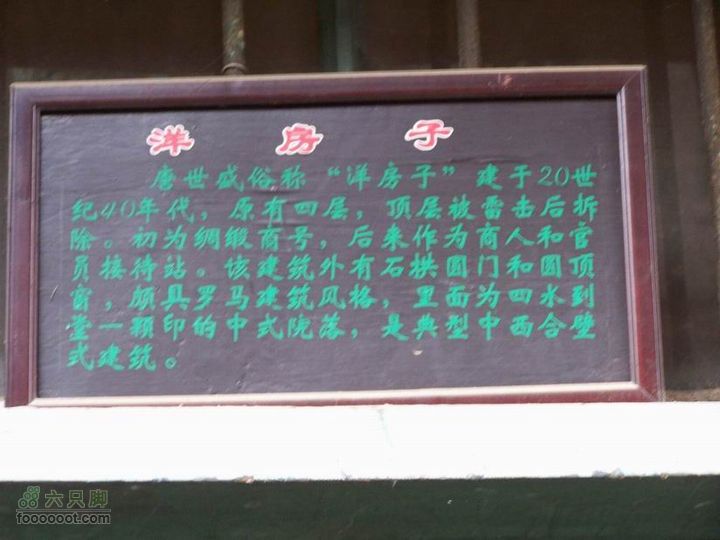 洋房子
唐世盛俗称“洋房子”建于20世
纪40年代，原有四层，顶层被雷击后拆
除。初为绸缎商号，后来作为商人和官
员接待站。该建筑外有石拱圆门和圆顶
窗，颇具罗马建筑风格，里面为四水到
堂一颗印的中式院落，是典型中西合璧
式建筑。
六只脚
foooooot.com